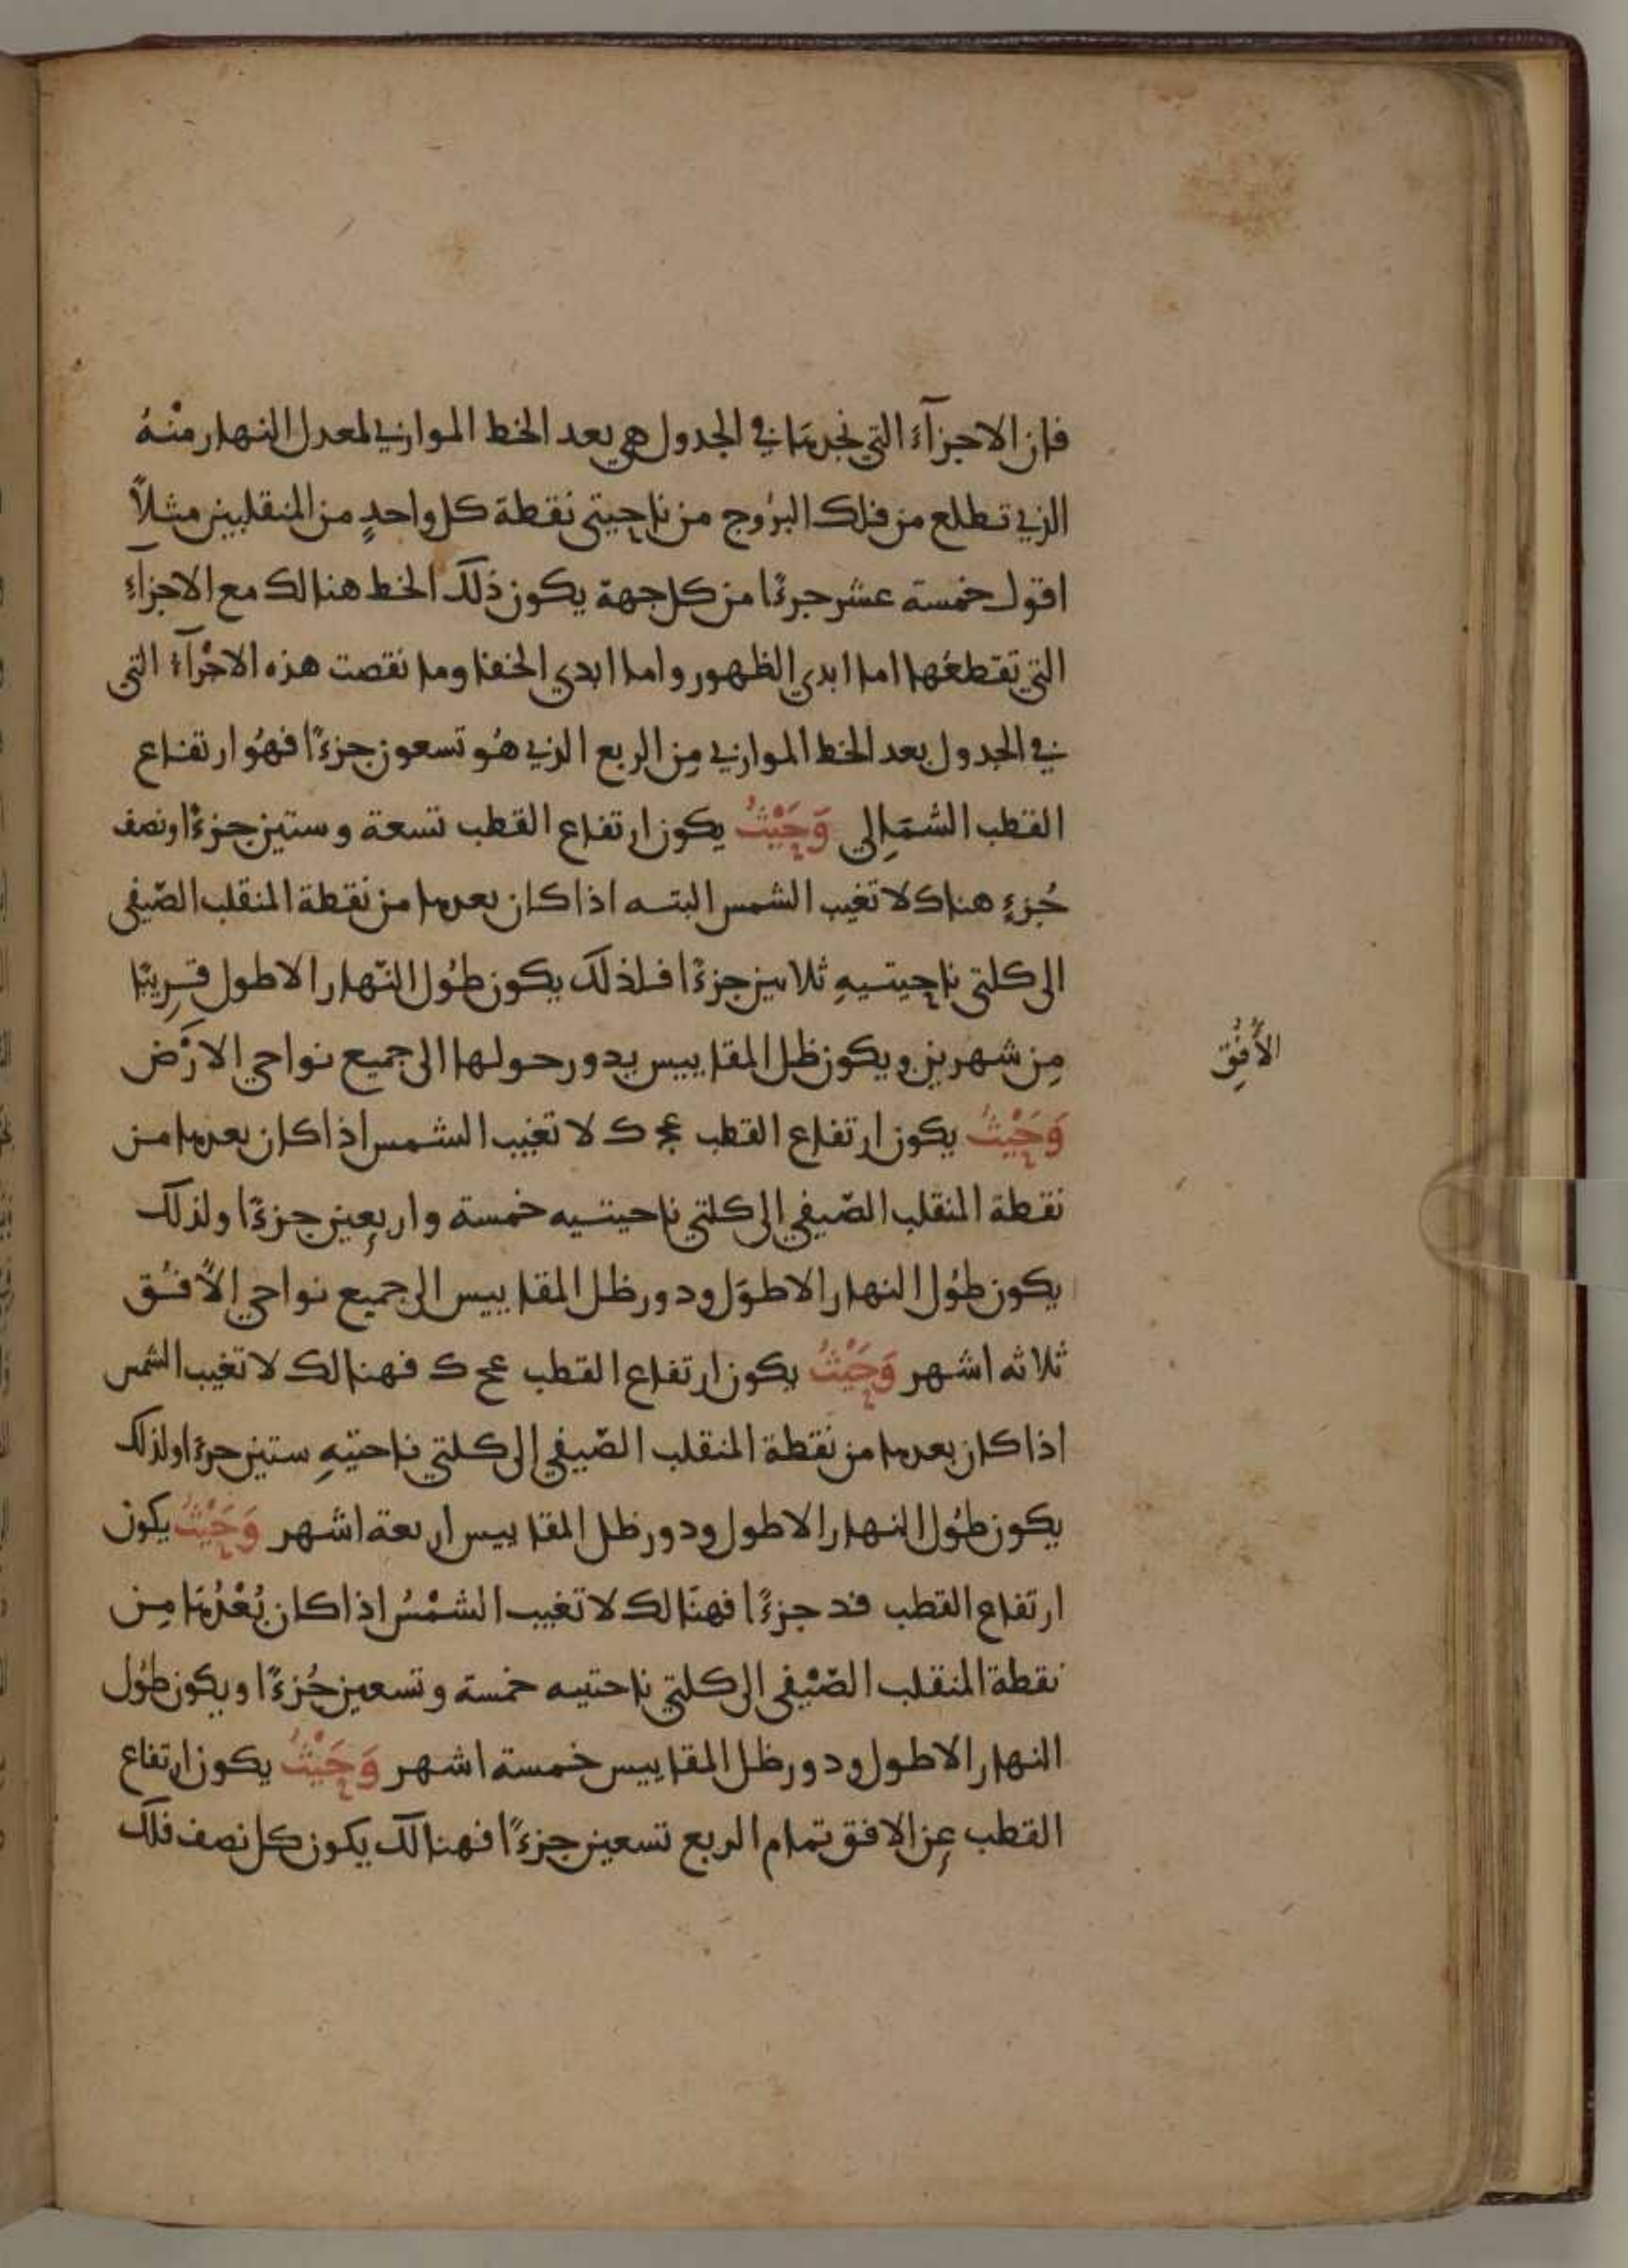 فان الاجزآء التي نجدها في الجدول هي بعد الخط الموازي لمعدل النهار منْهُ
الذي تطلع من فلك البرُوج من ناحيتى نقطة كل واحدٍ من المنقلبين مثلاً
اقول خمسة عشر جزءًا من كل جهة يكون ذلك الخط هنالك مع الاجزآءِ
التي تقطعُها اما ابدي الظهور واما ابدي الخفا وما نقصت هذه الاجْزآء التى
في الجدول بعد الخط الموازي مِن الربع الذي هُو تسعون جزءًا فهُو ارتفاع
القطب الشمَالِي وَحَيْثُ يكون ارتفاع القطب تسعة وستين جزءًا ونصف
جُزءٍ هناك لا تغيب الشمس البته اذا كان بعدها من نقطة المنقلب الصّيفى
الى كلتى ناحيتيهِ ثلاثين جزءًا فلذلك يكون طُول النّهار الاطول قرِيبًا
مِن شهرين ويكون ظل المقاييس يدور حولها الى جميع نواحي الارْض
الأُفُق
وَحَيْثُ يكون ارتفاع القطب عج ك لا تغيب الشمس اذا كان بعدها من
نقطة المنقلب الصّيفي الى كلتي ناحيتيه خمسة واربعين جزءًا ولذلك
يكون طُول النهار الاطوَل ودور ظل المقاييس الى جميع نواحي الأفُق
ثلاثه اشهر وَحَيْثُ يكون ارتفاع القطب عح ك فهنالك لا تغيب الشمس
اذا كان بعدها من نقطة المنقلب الصّيفي الى كلتي ناحتيهِ ستين جزءًا ولذلك
يكون طُول النهار الاطول ودور ظل المقاييس اربعة اشهر وَحَيْثُ يكون
ارتفاع القطب فد جزءًا فهنَالك لا تغيب الشمْسُ اذا كان بُعْدُهَا مِن
نقطة المنقلب الصّيْفى الى كلتي ناحتيه خمسة وتسعين جُزءًا ويكون طُول
النهار الاطول ودور ظل المقاييس خمسة اشهر وَحَيْثُ يكون ارتفاع
القطب عن الافق تمام الربع تسعين جزءًا فهنالك يكون كل نصف فلك